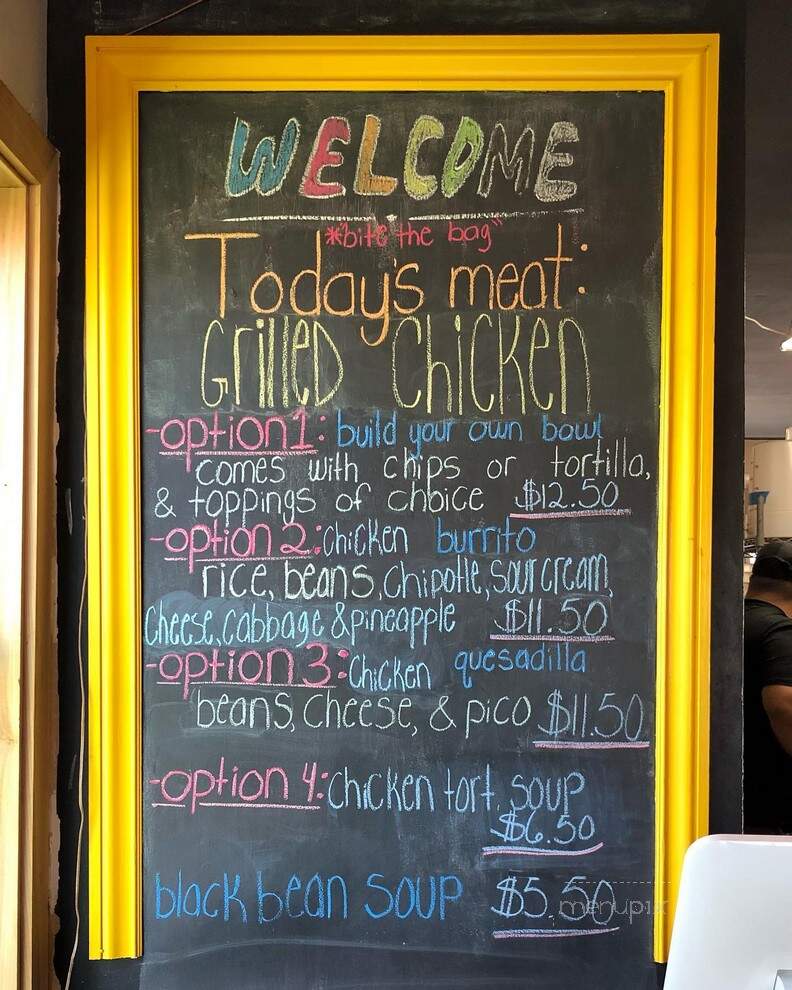 WELCOME
*"bite the bag"
Today's meat:
Grilled Chicken
-option 1: build your own bowl
comes with chips or tortilla,
& toppings of choice $12.50
-option 2: Chicken burrito
rice, beans, chipotle, sour cream,
Cheese, cabbage & pineapple $11.50
-option 3: Chicken quesadilla
beans, cheese, & pico $11.50
-option 4: Chicken tort. soup
$6.50
black bean soup $5.50
menupix